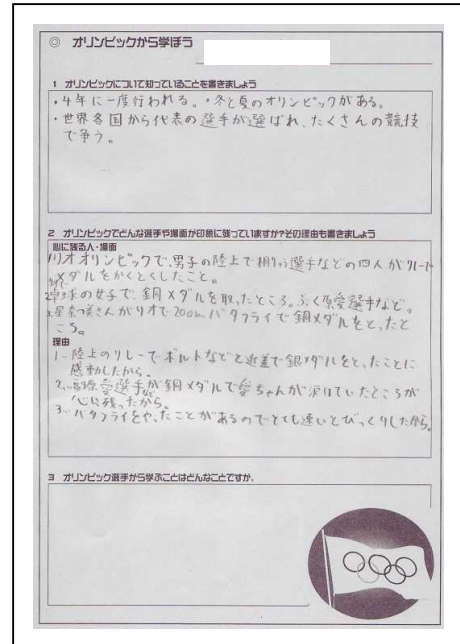 ◎ オリンピックから学ぼう
1 オリンピックについて知っていることを書きましょう
・4年に一度行われる。・冬と夏のオリンピックがある。
・世界各国から代表の選手が選ばれ、たくさんの競技
で争う。
2 オリンピックでどんな選手や場面が印象に残っていますか?その理由も書きましょう
心に残る人・場面
リオオリンピックで、男子の陸上で桐生選手などの四人がリレーで
メダルをかくとくしたこと。
2.卓球の女子で、銅メダルを取ったところ。ふく原愛選手など。
3.星奈津美さんがリオで200m、バタフライで銅メダルをとったと
ころ。
理由
1.陸上のリレーでボルトなどと近差で銀メダルをとったことに
感動したから。
2.愛選手が銅メダルで愛ちゃんが泣けていたところが
心に残ったから。
3.バタフライをやったことがあるのでとても速いとびっくりしたから。
3 オリンピック選手から学ぶことはどんなことですか。